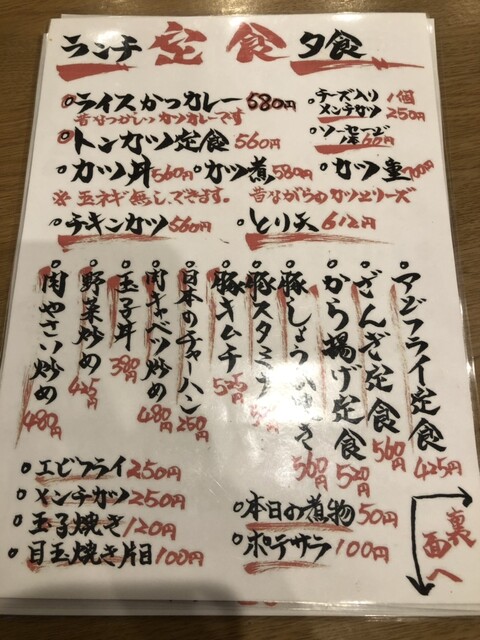 ランチ 定食 夕食
ライスかつカレー 580円
昔なつかしいカツカレーです
チーズ入り 1個
メンチカツ 250円
トンカツ定食 560円
ソーセージ
カツ丼 560円 カツ煮 580円 カツ重
※玉ネギ無しできます。 昔ながらのカツシリーズ
チキンカツ 560円 とり天 612円
アジフライ定食 425円
ざんぎ定食 560円
から揚げ定食 520円
豚しょうがやき 560円
豚スタミナ
豚キムチ 525円
日本のチャーハン 250円
肉キャベツ炒め 480円
玉子丼 380円
野菜炒め 425円
肉やさい炒め 480円
エビフライ 250円
メンチカツ 250円
玉子焼き 120円
目玉焼き片目 100円
本日の煮物 50円
ポテサラ 100円
裏面へ